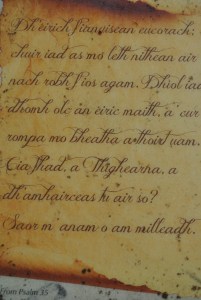 Dh'éirich fianuisean eucorach;
chuir iad as mo leth nithean air
nach robh fios agam. Dhìol iad
dhomh olc an éiric maith, a' cur
rompa mo bheatha a thoirt uam.
Cia fhad, a Thighearna, a
dh'amhairceas tu air so?
Saor m' anam o am milleadh.
From Psalm 35